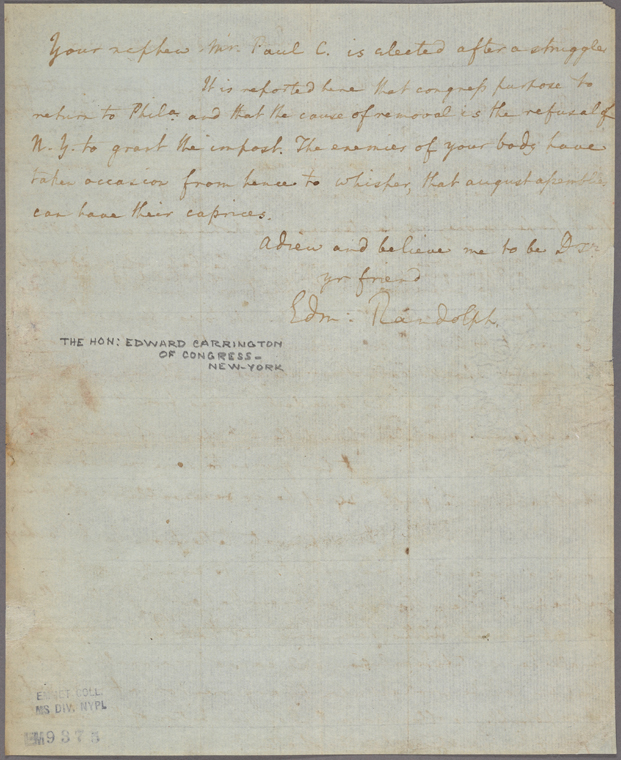 Your nephew Mr. Paul C. is elected after a struggle
It is reported here that congress purpose to
return to Phila. and that the cause of removal is the refusal of
N. Y. to grant the impost. The enemies of your body have
taken occasion from hence to whisper, that august assemblies
can have their caprices.
Adieu and believe me to be Dr Sr
yr friend
Edm: Randolph.
THE HON: EDWARD CARRINGTON
OF CONGRESS–
NEW-YORK
EMMET COLL.
MS DIV. NYPL
EM 9375